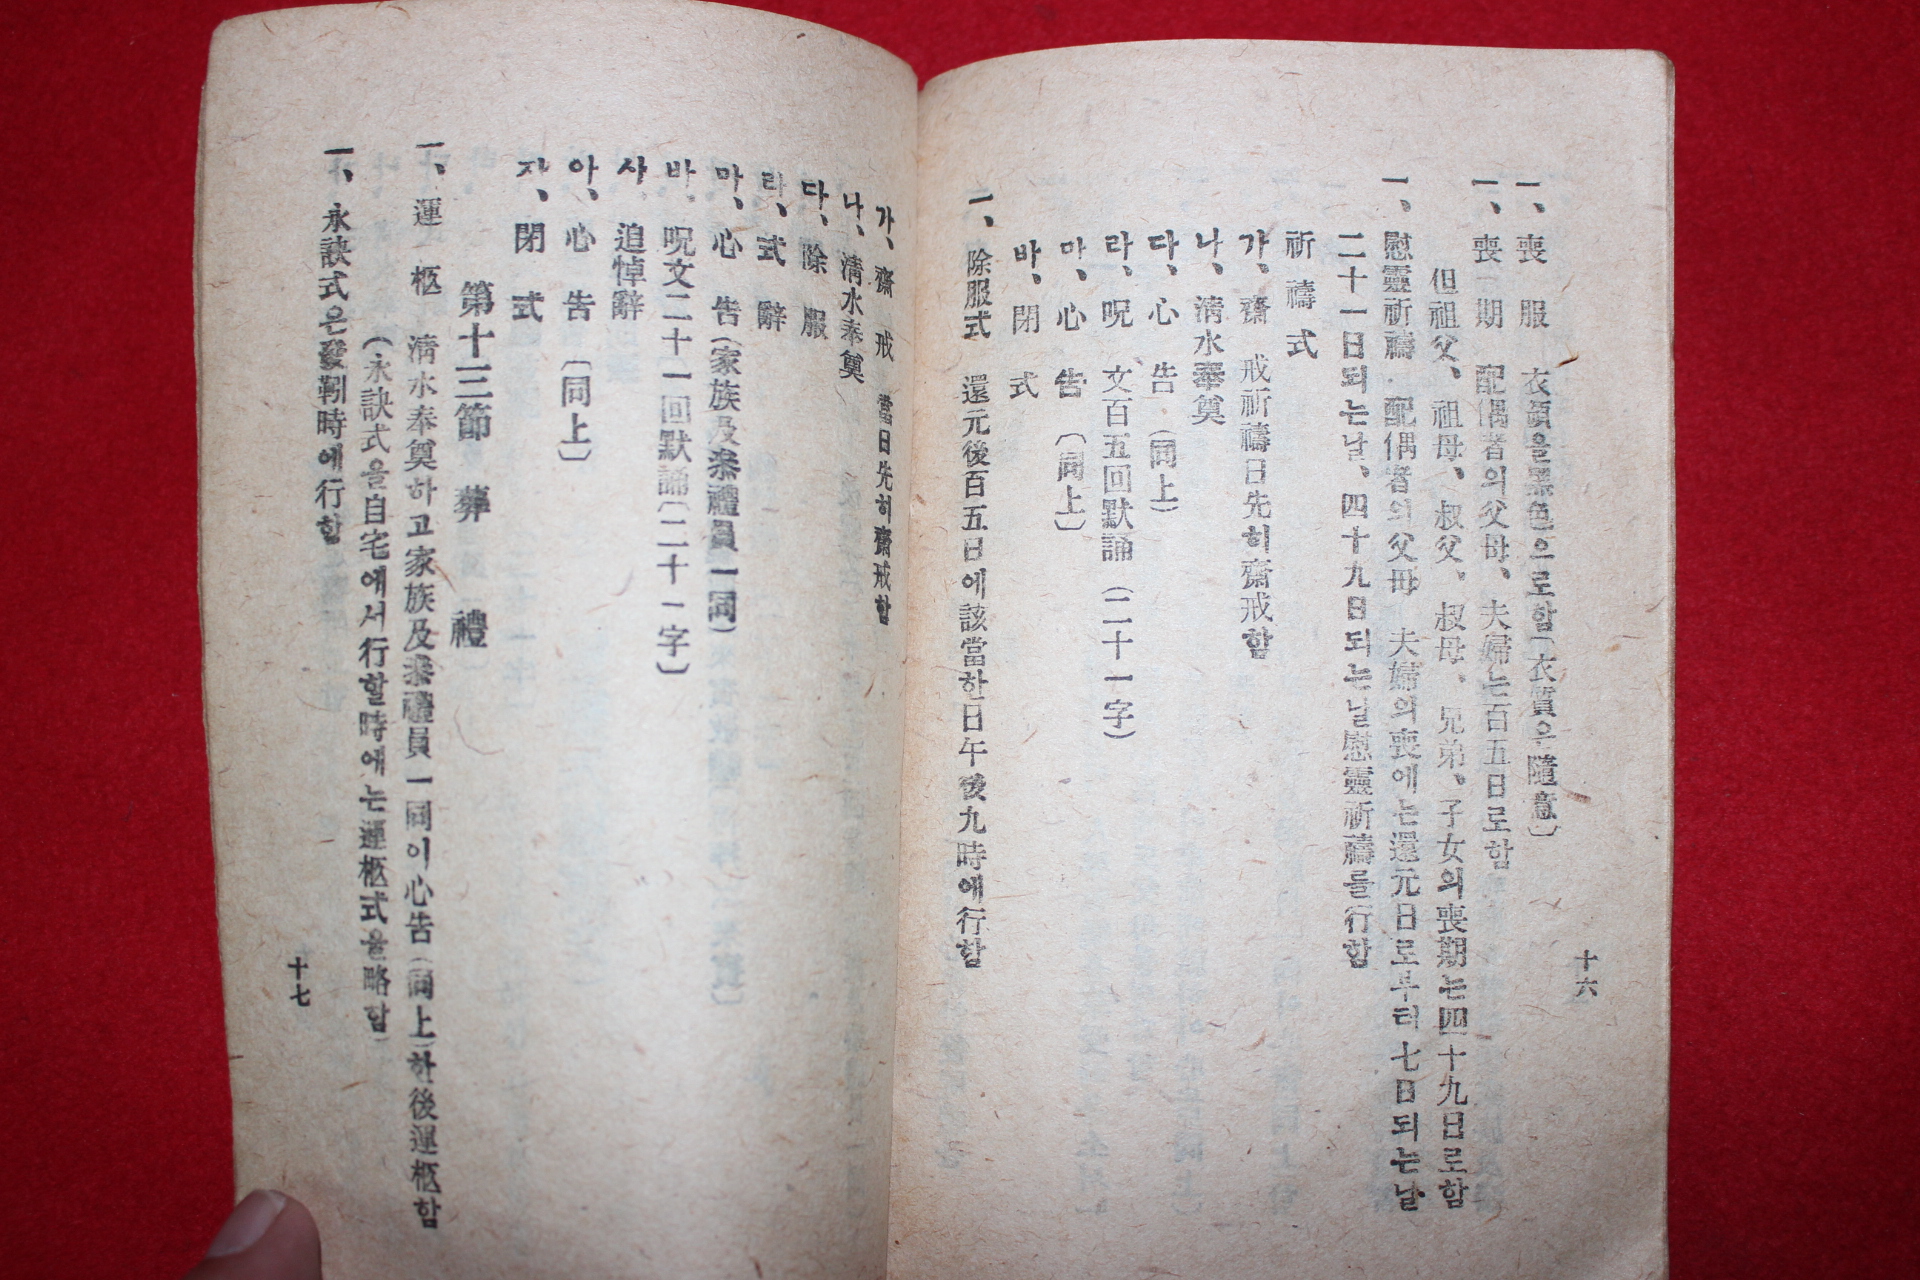 一、喪 服 衣領을黑色으로함(衣質은隨意)
一、喪 期 配偶者의父母、夫婦는百五日로함
但祖父、祖母、叔父、叔母、兄弟、子女의喪期는四十九日로함
一、慰靈祈禱 配偶者의父母 夫婦의喪에는還元日로부터七日되는날
二十一日되는날、四十九日되는날慰靈祈禱를行함
祈禱式
가、齋 戒 祈禱日先히齋戒함
나、淸水奉奠
다、心 告 (同上)
라、呪 文百五回默誦 (二十一字)
마、心 告 (同上)
바、閉 式
一、除服式 還元後百五日에該當한日午後九時에行함
十六
가、齋 戒 當日先히齋戒함
나、淸水奉奠
다、除 服
라、式 辭
마、心 告(家族及叅禮員一同)
바、呪文二十一回默誦(二十一字)
사、追悼辭
아、心 告 (同上)
자、閉 式
第十三節 葬 禮
一、運 柩 淸水奉奠하고家族及叅禮員一同이心告(同上)한後運柩함
(永訣式을自宅에서行할時에는運柩式을略함)
一、永訣式은發靷時에行함
十七